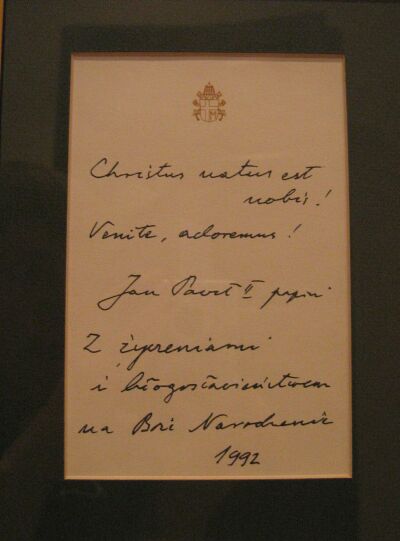 Christus natus est
nobis!
Venite, adoremus!
Jan Paweł II papież
Z życzeniami
i błogosławieństwem
na Boże Narodzenie
1992